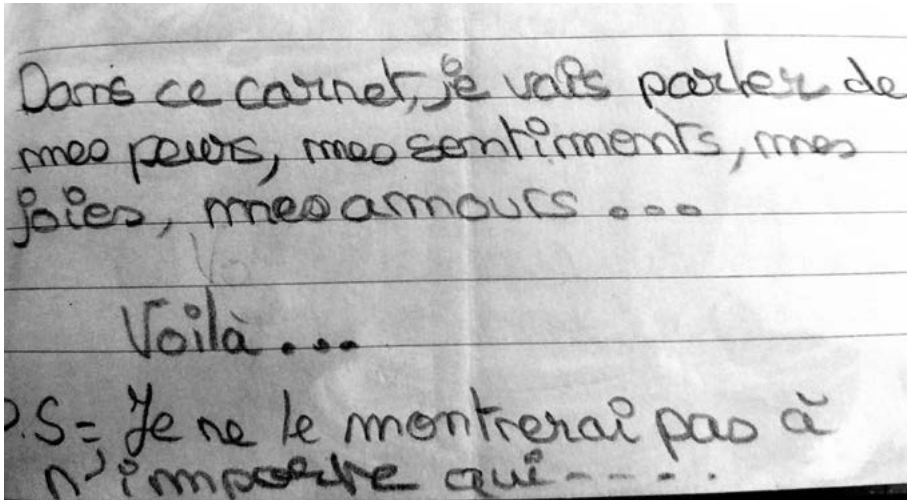 Dans ce carnet, je vais parler de
mes peurs, mes sentiments, mes
joies, mes amours ...
Voilà ...
P.S= Je ne le montrerai pas à
n'importe qui-----.